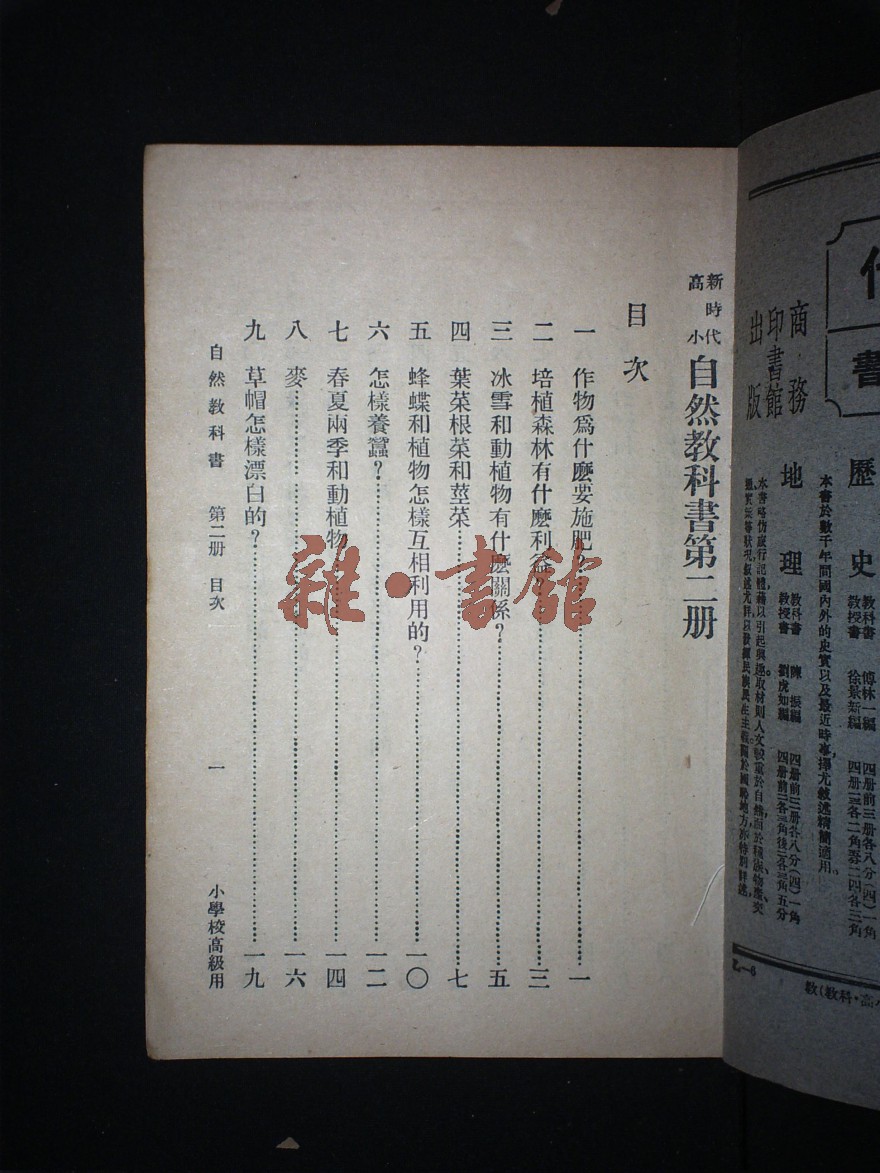 新時代
高小
自然教科書第二册
目次
一 作物爲什麽要施肥?……一
二 培植森林有什麽利益……三
三 冰雪和動植物有什麽關係?……五
四 葉菜根菜和莖菜……七
五 蜂蝶和植物怎樣互相利用的?……一〇
六 怎樣養蠶?……一二
七 春夏兩季和動植物……一四
八 麥……一六
九 草帽怎樣漂白的?……一九
自然教科書 第二册 目次 一 小學校高級用
雜·書館
書
商務
印書館
出版
歷史 教科書 傅林一編 四册前三册各八分(四)一角
教授書 徐景新編
本書於數千年間國內外的史實以及最近時事擇尤敍述精簡適用。
地理 教科書 陳振編 四册前三册各八分(四)一角
教授書 劉虎如編